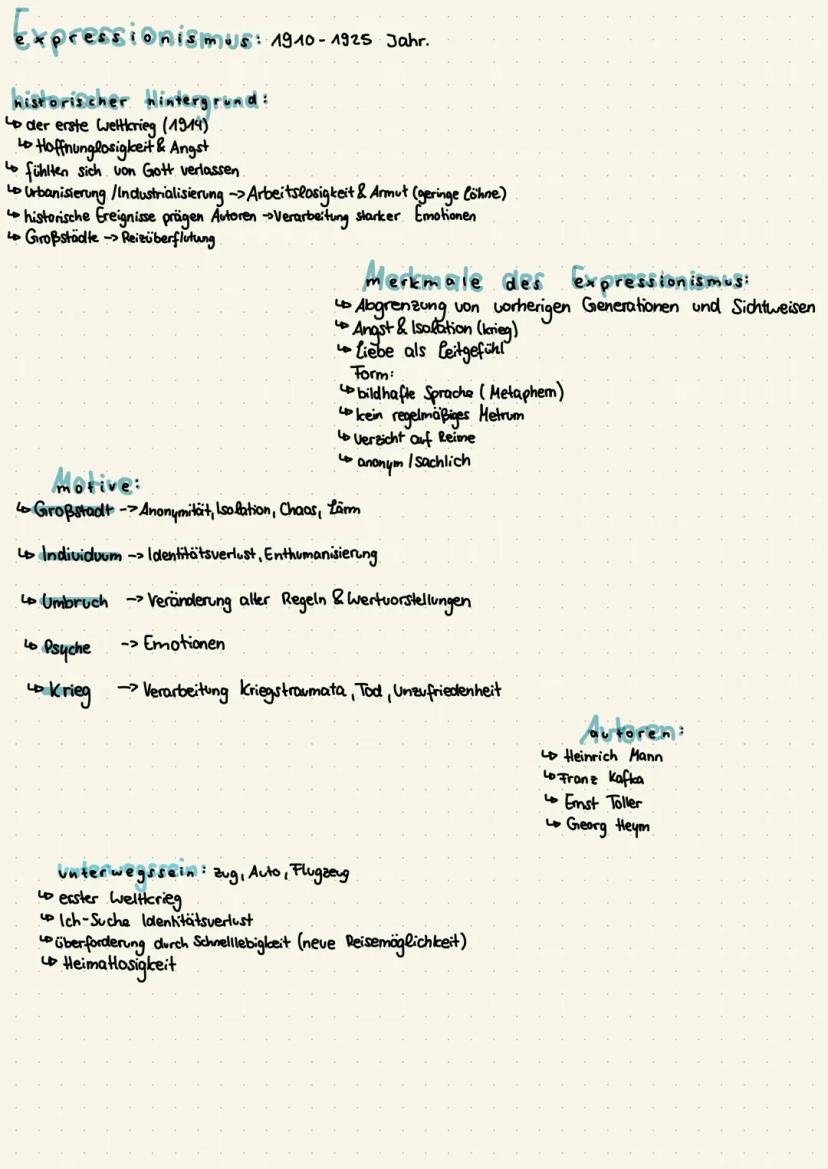 Expressionismus: 1910-1925 Jahr.
historischer Hintergrund:
↳ der erste Weltkrieg (1914)
↳ Hoffnunglosigkeit & Angst
↳ fühlten sich von Gott verlassen
↳ Urbanisierung /Industrialisierung -> Arbeitslosigkeit & Armut (geringe Löhne)
↳ historische Ereignisse prägen Autoren -> Verarbeitung starker Emotionen
↳ Großstädte -> Reizüberflutung
Merkmale des Expressionismus:
↳ Abgrenzung von vorherigen Generationen und Sichtweisen
↳ Angst & Isolation (krieg)
↳ Liebe als Leitgefühl
Form:
↳ bildhafte Sprache (Metaphern)
↳ kein regelmäßiges Metrum
↳ verzicht auf Reime
↳ anonym / sachlich
Motive:
↳ Großstadt -> Anonymität, Isolation, Chaos, Lärm
↳ Individuum -> Identitätsverlust, Enthumanisierung
↳ Umbruch -> Veränderung aller Regeln & Wertvorstellungen
↳ Psyche -> Emotionen
↳ Krieg -> Verarbeitung Kriegstraumata, Tod, Unzufriedenheit
Autoren:
↳ Heinrich Mann
↳ Franz Kafka
↳ Ernst Toller
↳ Georg Heym
unterwegssein: Zug, Auto, Flugzeug
↳ erster Weltkrieg
↳ Ich-Suche Identitätsverlust
↳ überforderung durch Schnelllebigkeit (neue Reisemöglichkeit)
↳ Heimatlosigkeit